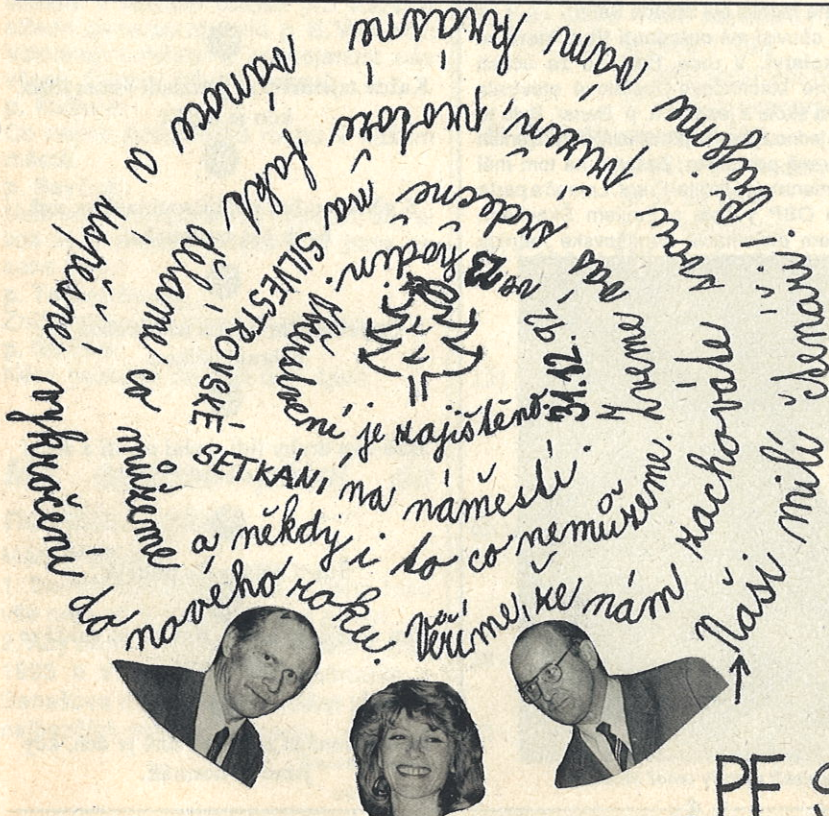 Naši milí čtenáři. Přejeme vám krásné vánoce a úspěšné vykročení do nového roku. Věříme, že nám zachováte svou přízeň, protože fakt děláme co můžeme a někdy i to co nemůžeme. Zveme vás srdečně na SILVESTROVSKÉ SETKÁNÍ na náměstí. 31.12. 92 ve 23 hodin. je zajištěno.
PF